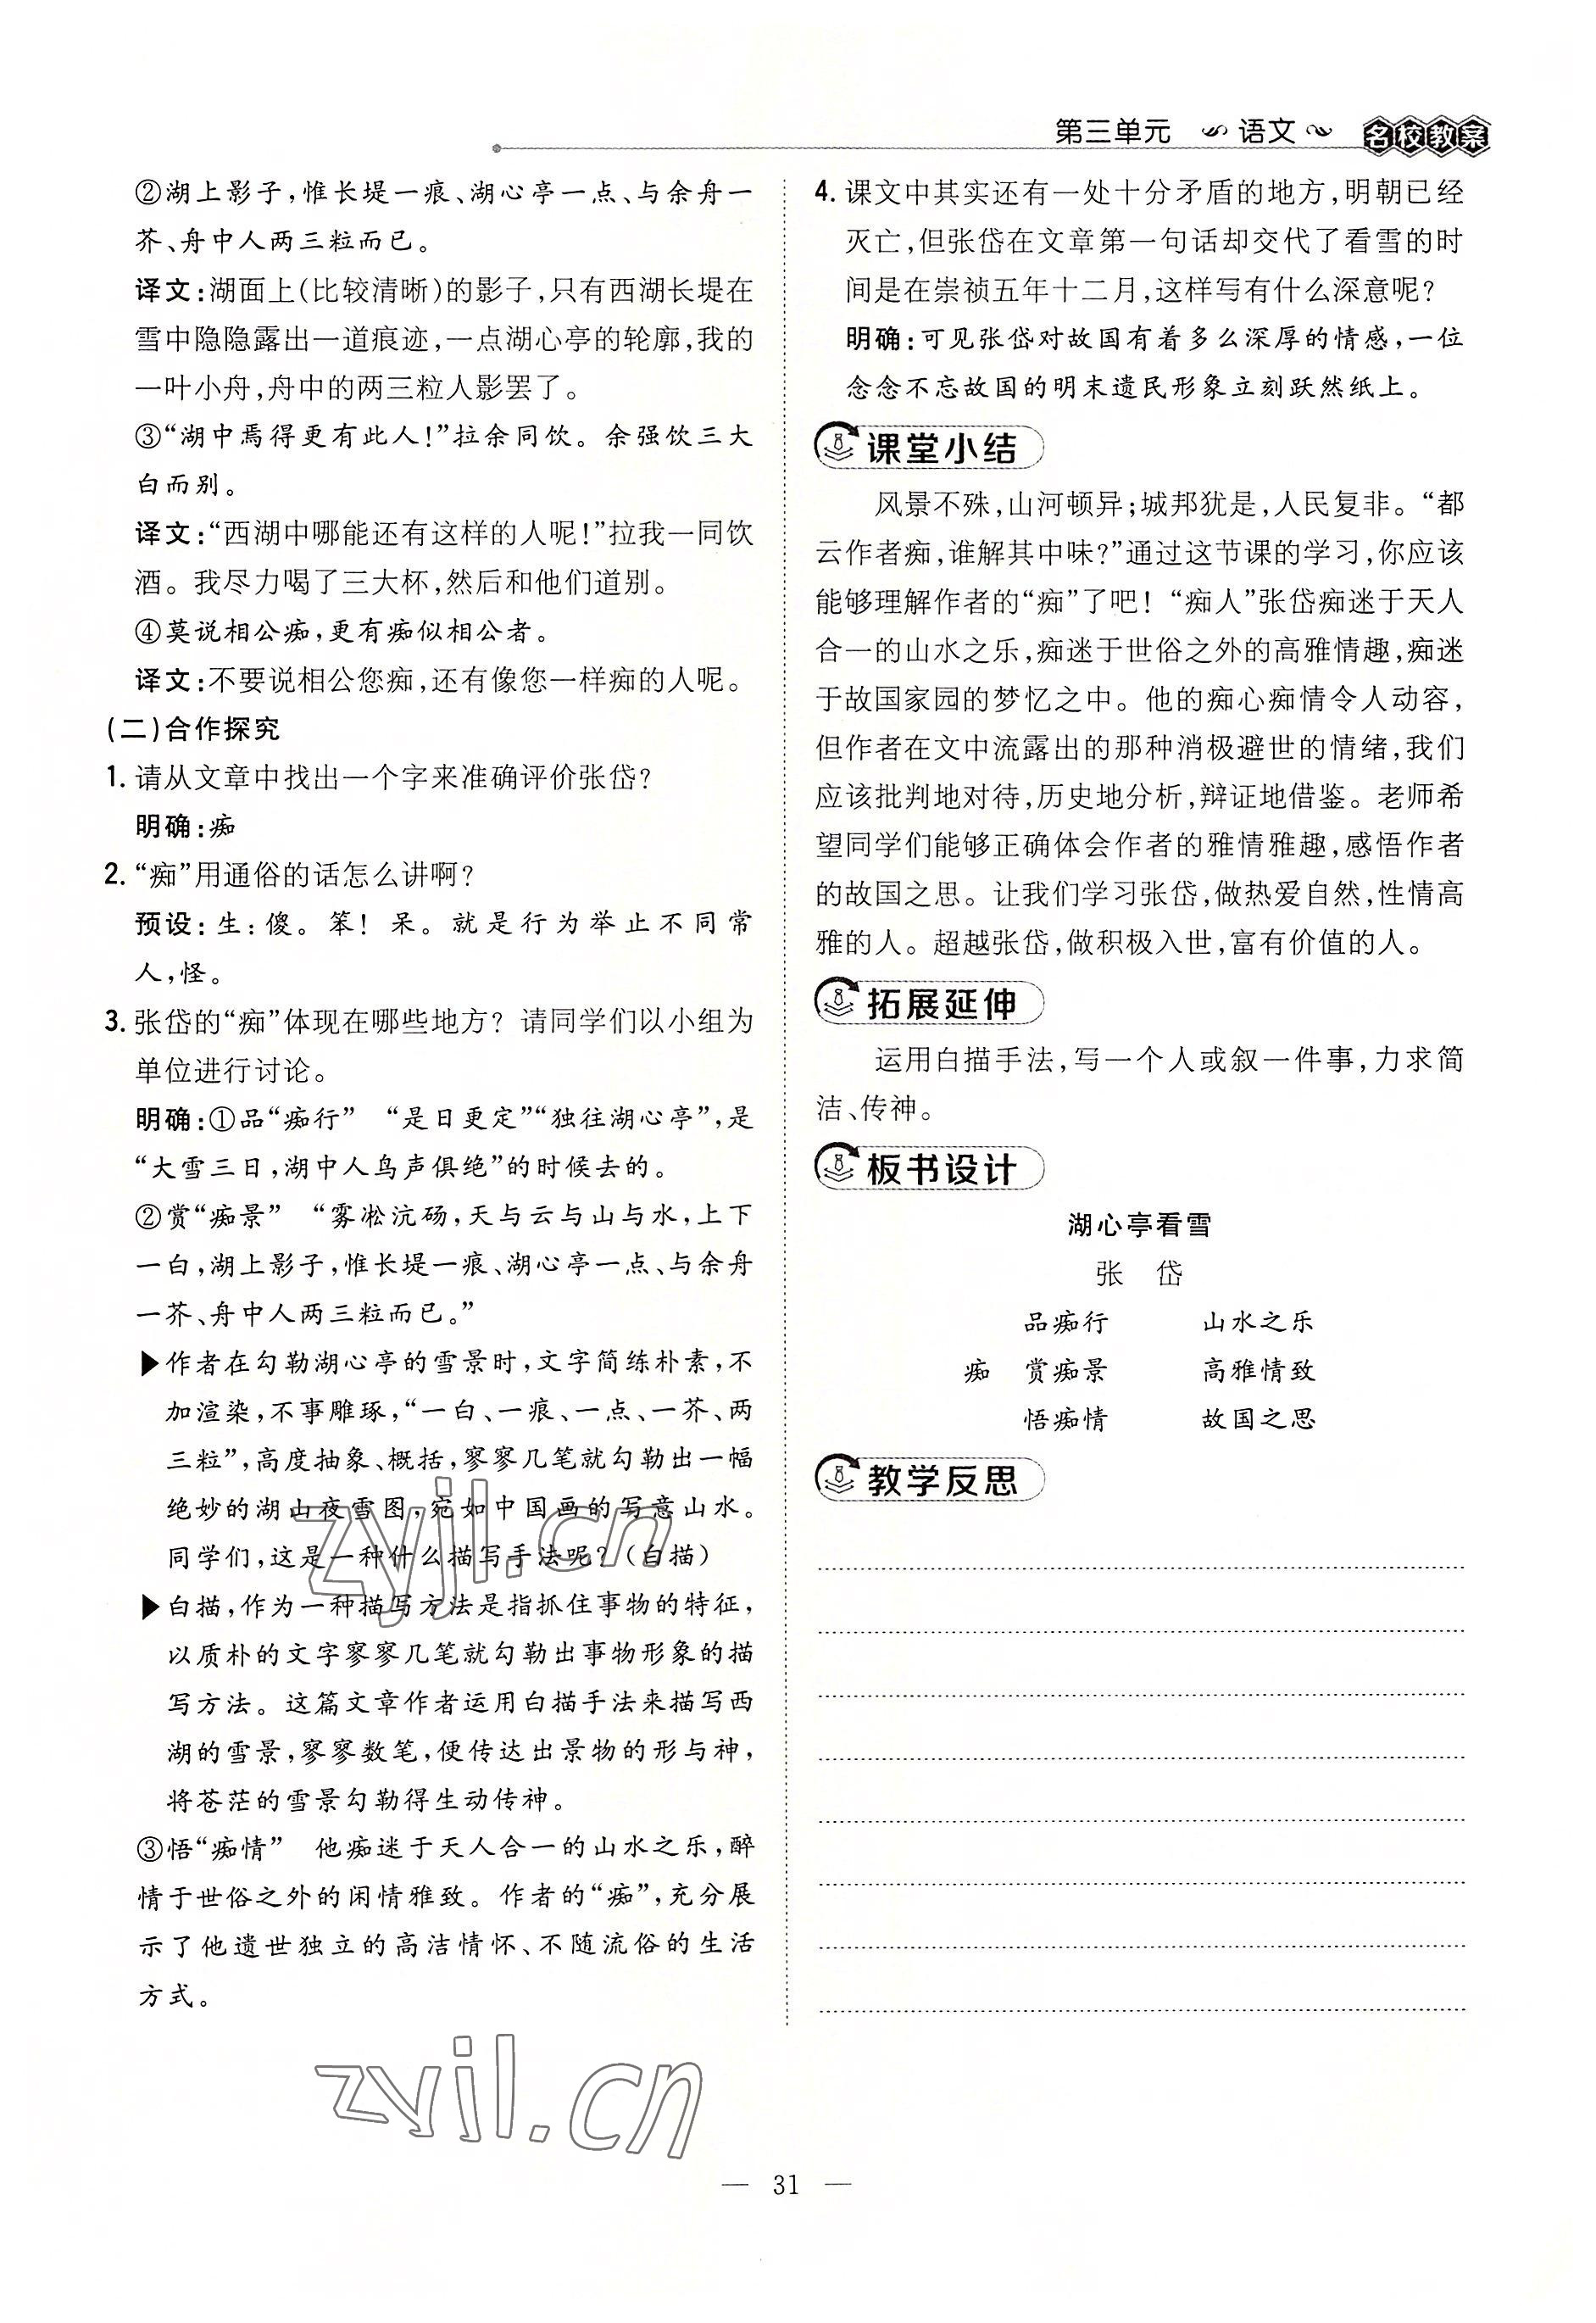 第三单元 语文 名校教案
②湖上影子,惟长堤一痕、湖心亭一点、与余舟一
芥、舟中人两三粒而已。
译文:湖面上(比较清晰)的影子,只有西湖长堤在
雪中隐隐露出一道痕迹,一点湖心亭的轮廓,我的
一叶小舟,舟中的两三粒人影罢了。
③“湖中焉得更有此人!”拉余同饮。余强饮三大
白而别。
译文:“西湖中哪能还有这样的人呢!”拉我一同饮
酒。我尽力喝了三大杯,然后和他们道别。
④莫说相公痴,更有痴似相公者。
译文:不要说相公您痴,还有像您一样痴的人呢。
(二)合作探究
1. 请从文章中找出一个字来准确评价张岱?
明确:痴
2. “痴”用通俗的话怎么讲啊?
预设:生:傻。笨!呆。就是行为举止不同常
人,怪。
3. 张岱的“痴”体现在哪些地方?请同学们以小组为
单位进行讨论。
明确:①品“痴行” “是日更定”“独往湖心亭”,是
“大雪三日,湖中人鸟声俱绝”的时候去的。
②赏“痴景” “雾凇沆砀,天与云与山与水,上下
一白,湖上影子,惟长堤一痕、湖心亭一点、与余舟
一芥、舟中人两三粒而已。”
▶作者在勾勒湖心亭的雪景时,文字简练朴素,不
加渲染,不事雕琢,“一白、一痕、一点、一芥、两
三粒”,高度抽象、概括,寥寥几笔就勾勒出一幅
绝妙的湖山夜雪图,宛如中国画的写意山水。
同学们,这是一种什么描写手法呢?(白描)
▶白描,作为一种描写方法是指抓住事物的特征,
以质朴的文字寥寥几笔就勾勒出事物形象的描
写方法。这篇文章作者运用白描手法来描写西
湖的雪景,寥寥数笔,便传达出景物的形与神,
将苍茫的雪景勾勒得生动传神。
③悟“痴情” 他痴迷于天人合一的山水之乐,醉
情于世俗之外的闲情雅致。作者的“痴”,充分展
示了他遗世独立的高洁情怀、不随流俗的生活
方式。
4. 课文中其实还有一处十分矛盾的地方,明朝已经
灭亡,但张岱在文章第一句话却交代了看雪的时
间是在崇祯五年十二月,这样写有什么深意呢?
明确:可见张岱对故国有着多么深厚的情感,一位
念念不忘故国的明末遗民形象立刻跃然纸上。
课堂小结
风景不殊,山河顿异;城邦犹是,人民复非。“都
云作者痴,谁解其中味?”通过这节课的学习,你应该
能够理解作者的“痴”了吧!“痴人”张岱痴迷于天人
合一的山水之乐,痴迷于世俗之外的高雅情趣,痴迷
于故国家园的梦忆之中。他的痴心痴情令人动容,
但作者在文中流露出的那种消极避世的情绪,我们
应该批判地对待,历史地分析,辩证地借鉴。老师希
望同学们能够正确体会作者的雅情雅趣,感悟作者
的故国之思。让我们学习张岱,做热爱自然,性情高
雅的人。超越张岱,做积极入世,富有价值的人。
拓展延伸
运用白描手法,写一个人或叙一件事,力求简
洁、传神。
板书设计
湖心亭看雪
张 岱
品痴行 山水之乐
痴 赏痴景 高雅情致
悟痴情 故国之思
教学反思
zyjl.cn
zyjl.cn
— 31 —